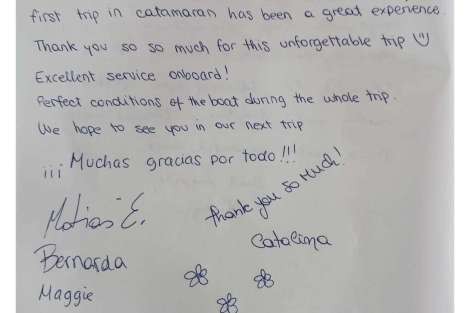 first trip in catamaran has been a great experience.
Thank you so so much for this unforgettable trip
Excellent service onboard!
Perfect conditions of the boat during the whole trip.
We hope to see you in our next trip
¡¡¡ Muchas gracias por todo!!!
Thank you so much!
Matías E.
Catalina
Bernarda
Maggie